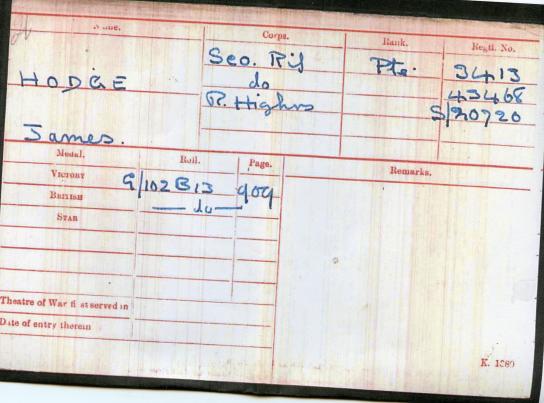 Name. Corps. Rank. Regtl. No.
HODGE Sco. Rif Pte. 3413
do 43468
R. Highrs S/20720
James.
Medal. Roll. Page. Remarks.
VICTORY G/102 B13 909
BRITISH — do —
STAR
Theatre of War first served in
Date of entry therein
K. 1380